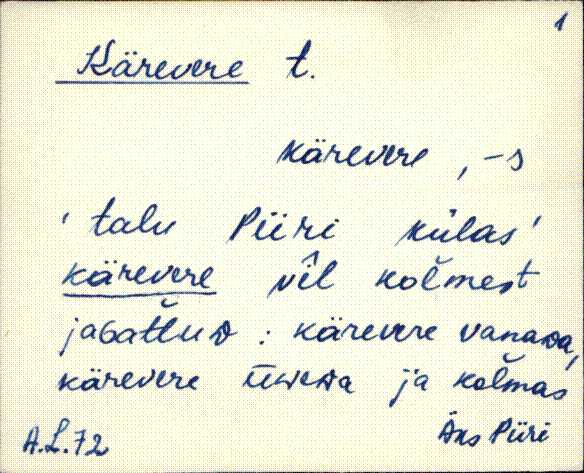 1
Kärevere t.
kärevere, -s
' talu Piiri külas '
kärevere vîl kolmest
jagattud : kärevere vanaʙa,
kärevere ja kolmas
A.L.72
Äks Piiri